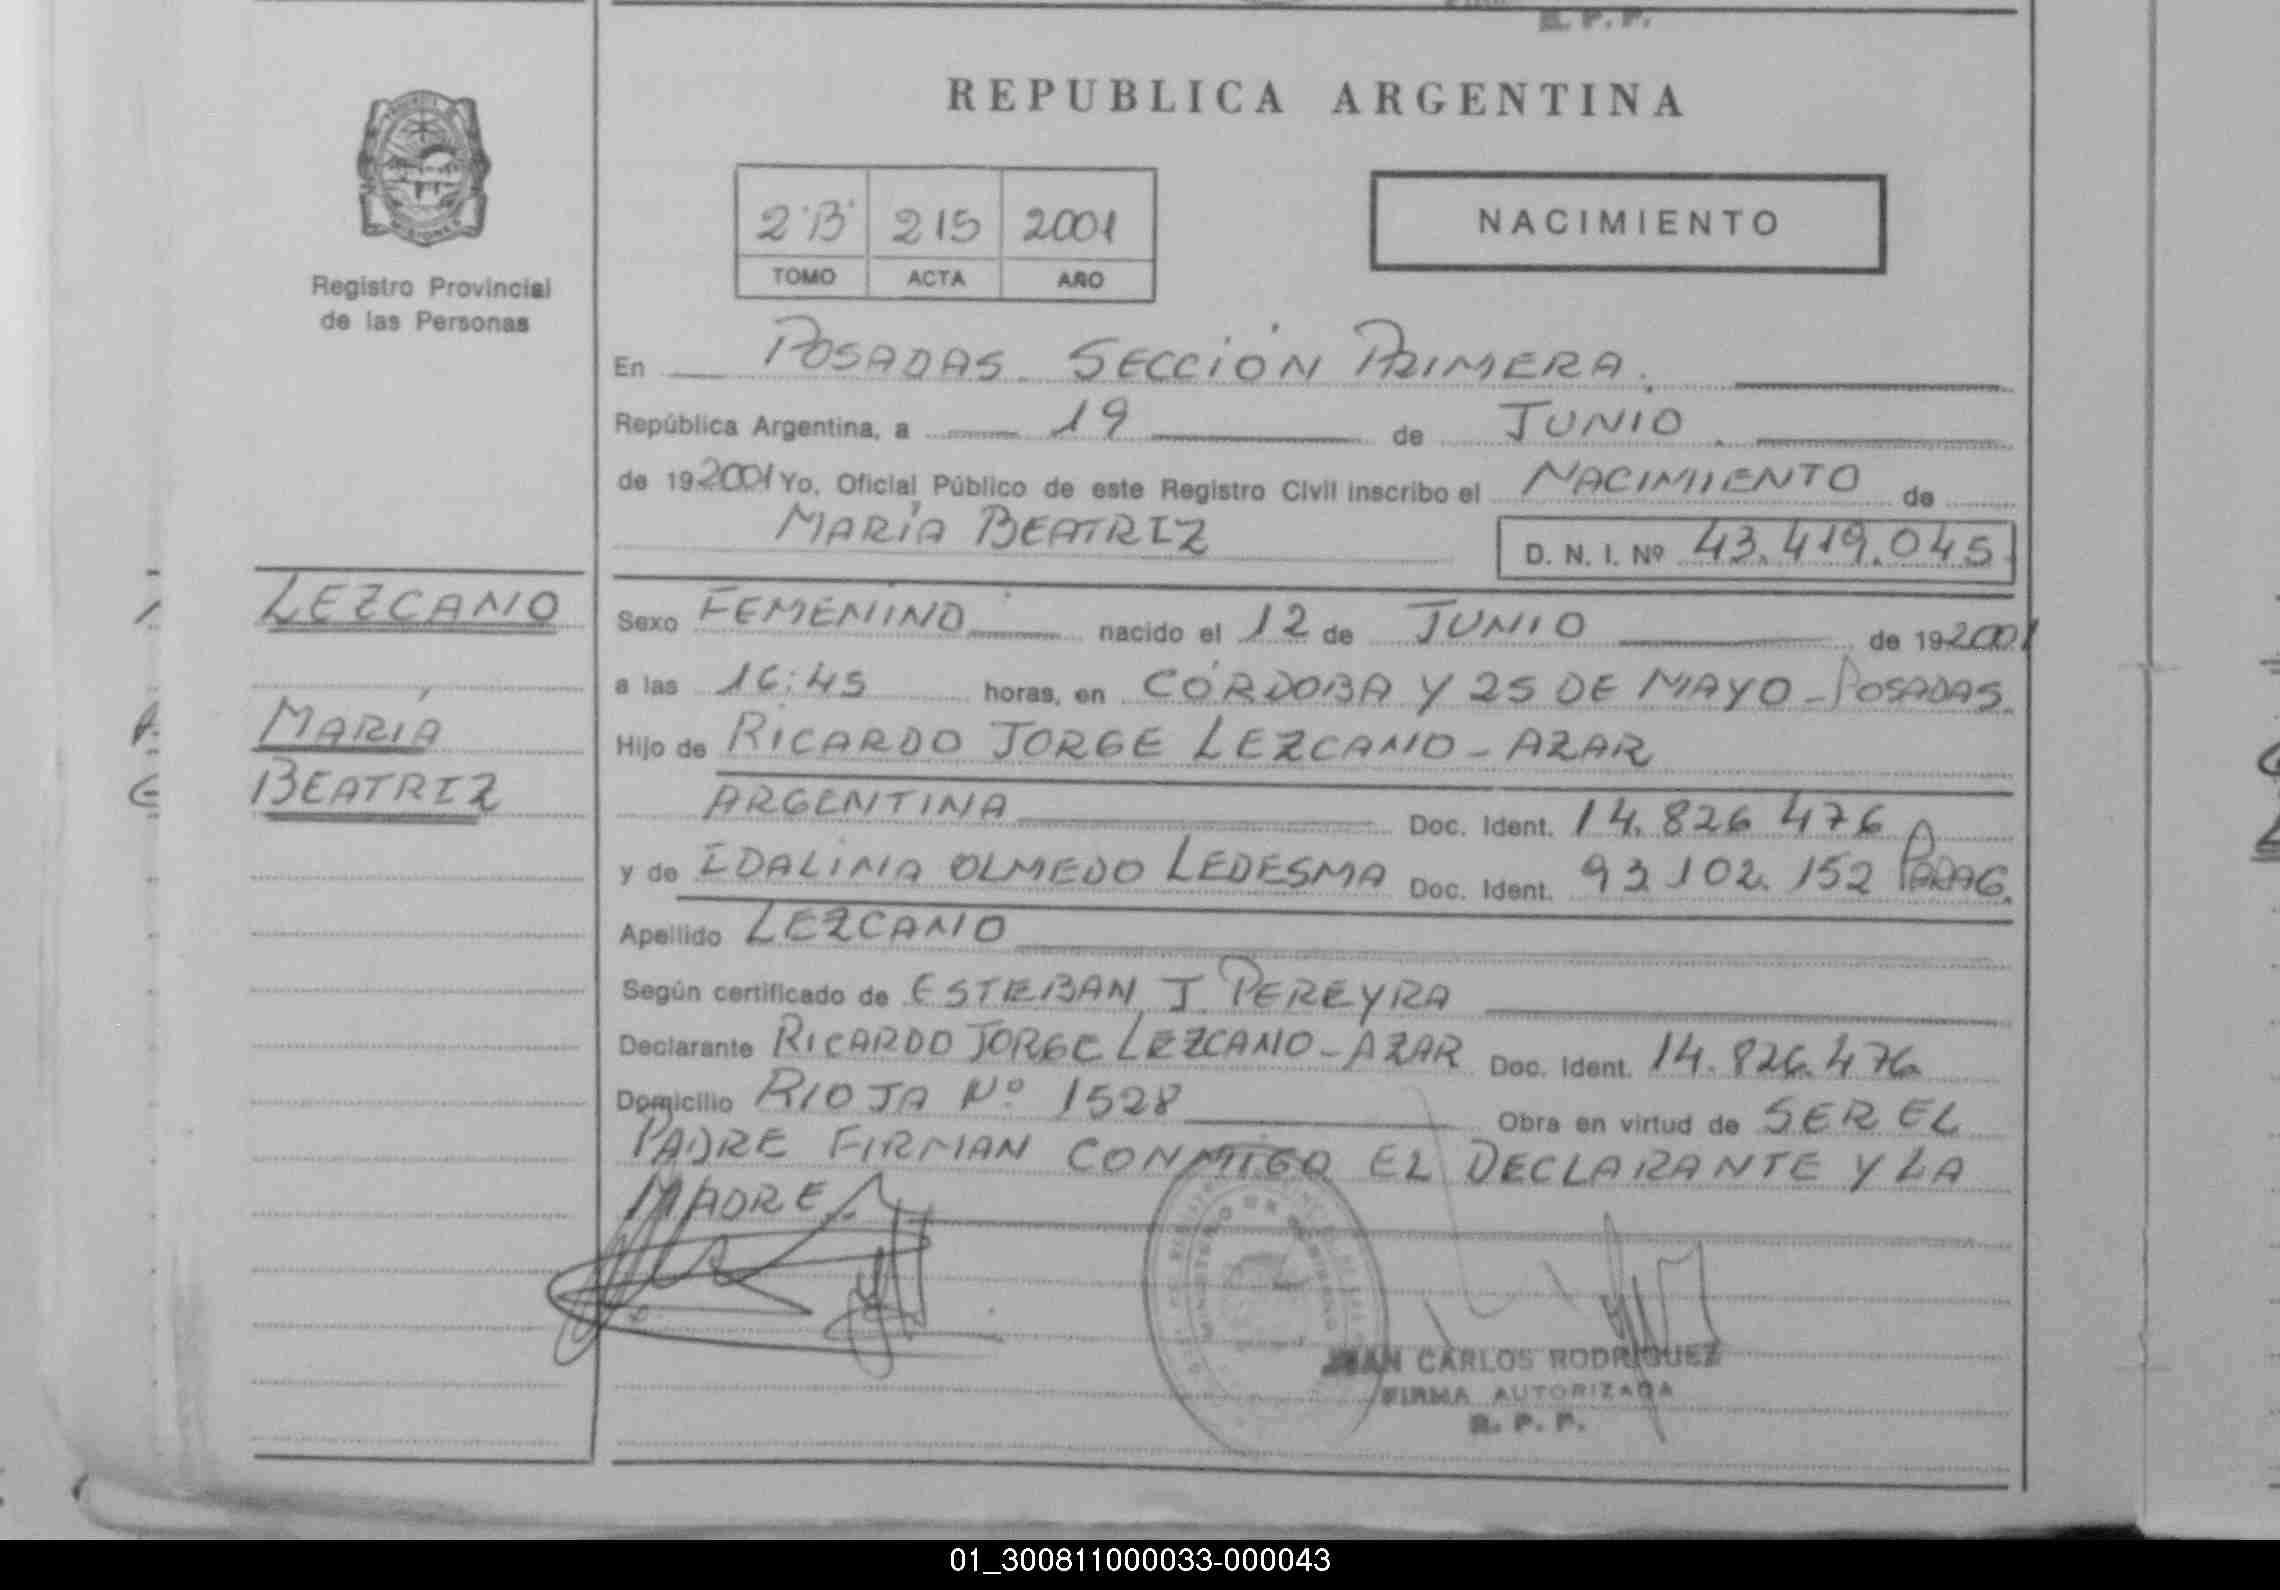 R. P. P.
REPUBLICA ARGENTINA
2 "B" 215 2001
TOMO ACTA AÑO
NACIMIENTO
MISIONES
Registro Provincial
de las Personas
En POSADAS SECCIÓN PRIMERA.
República Argentina, a 19 de JUNIO
de 192001 Yo, Oficial Público de este Registro Civil inscribo el NACIMIENTO de
MARÍA BEATRIZ D. N. I. Nº 43.419.045
LEZCANO
MARÍA
BEATRIZ
Sexo FEMENINO nacido el 12 de JUNIO de 192001
a las 16:45 horas, en CÓRDOBA Y 25 DE MAYO - POSADAS.
Hijo de RICARDO JORGE LEZCANO - AZAR
ARGENTINA Doc. Ident. 14.826 476
y de IDALINA OLMEDO LEDESMA Doc. Ident. 93.102.152 PARAG.
Apellido LEZCANO
Según certificado de ESTEBAN J. PEREYRA
Declarante RICARDO JORGE LEZCANO - AZAR Doc. Ident. 14.826.476
Domicilio RIOJA Nº 1528 Obra en virtud de SER EL
PADRE FIRMAN CONMIGO EL DECLARANTE Y LA
MADRE.
MINISTERIO DE GOBIERNO
JUAN CARLOS RODRIGUEZ
FIRMA AUTORIZADA
R. P. P.
01_300811000033-000043